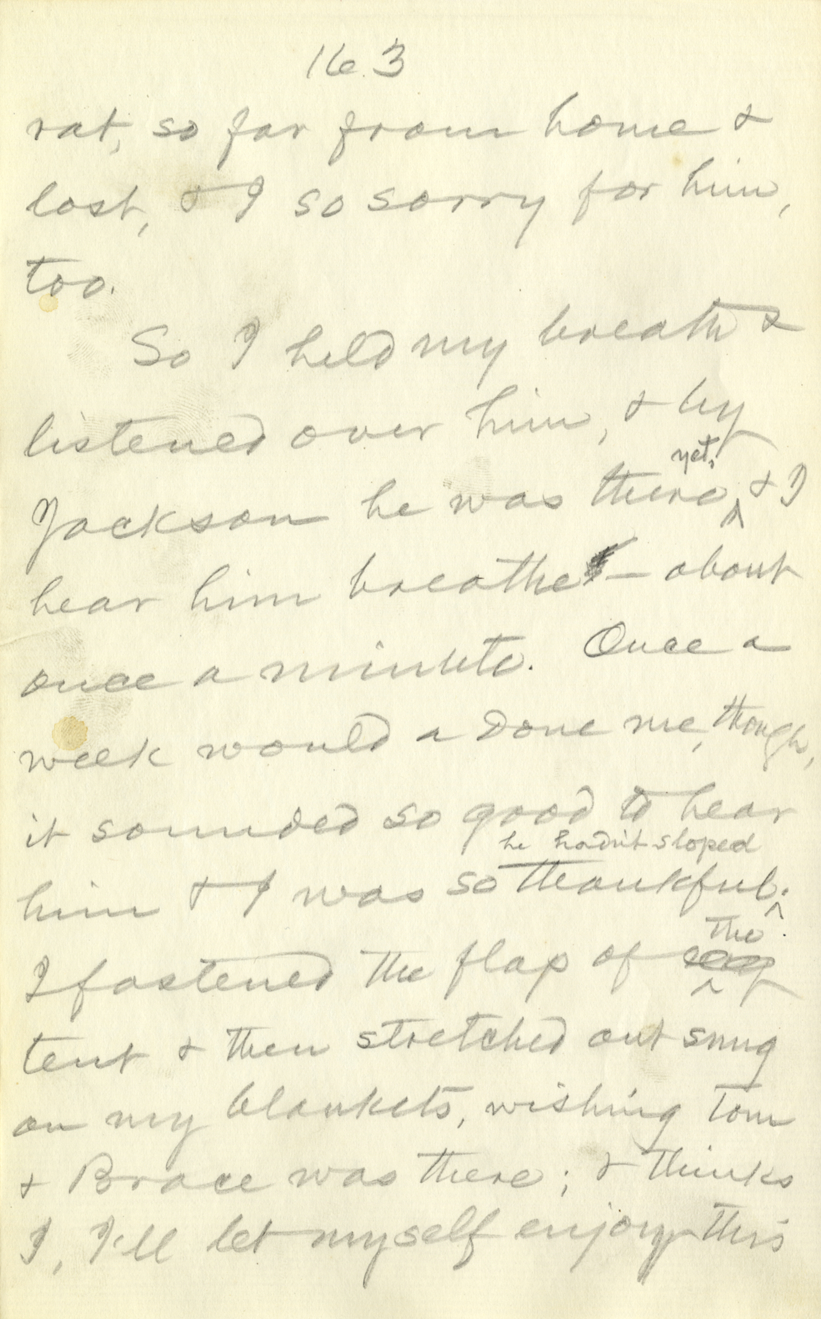 163
rat, so far from home &
lost, & I so sorry for him,
too.
So I held my breath &
listened over him, & by
yet,
Jackson he was there & I
hear him breathe — about
once a minute. Once a
week would a done me, though,
it sounded so good to hear
he hadn't sloped
him & I was so thankful.
the
I fastened the flap of
tent & then stretched out snug
on my blankets, wishing Tom
& Brace was there; & thinks
I, I'll let myself enjoy this